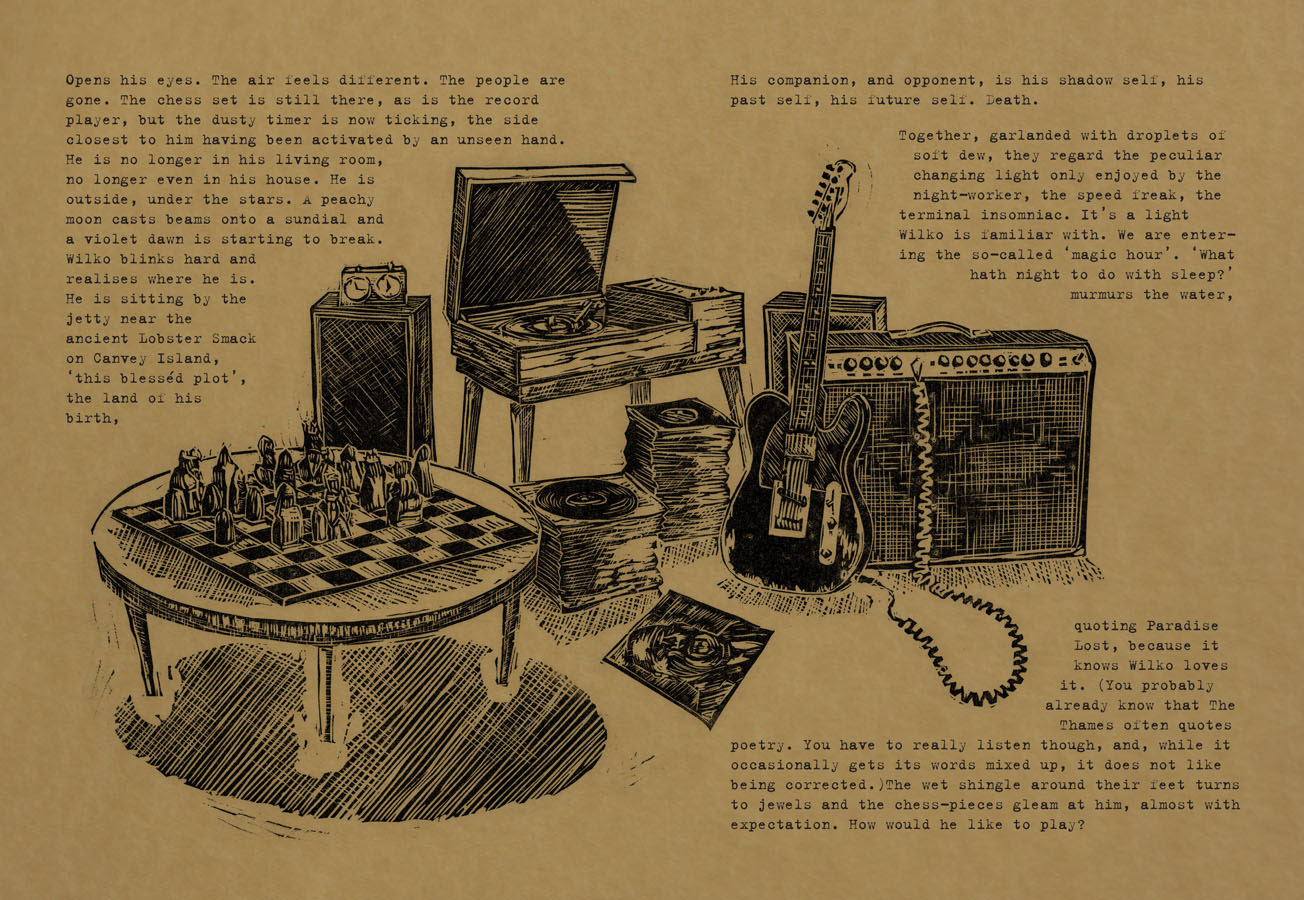 Opens his eyes. The air feels different. The people are
gone. The chess set is still there, as is the record
player, but the dusty timer is now ticking, the side
closest to him having been activated by an unseen hand.
He is no longer in his living room,
no longer even in his house. He is
outside, under the stars. A peachy
moon casts beams onto a sundial and
a violet dawn is starting to break.
Wilko blinks hard and
realises where he is.
He is sitting by the
jetty near the
ancient Lobster Smack
on Canvey Island,
‘this blesséd plot’,
the land of his
birth,
His companion, and opponent, is his shadow self, his
past self, his future self. Death.
Together, garlanded with droplets of
soft dew, they regard the peculiar
changing light only enjoyed by the
night-worker, the speed freak, the
terminal insomniac. It’s a light
Wilko is familiar with. We are enter-
ing the so-called ‘magic hour’. ‘What
hath night to do with sleep?’
murmurs the water,
quoting Paradise
Lost, because it
knows Wilko loves
it. (You probably
already know that The
Thames often quotes
poetry. You have to really listen though, and, while it
occasionally gets its words mixed up, it does not like
being corrected.)The wet shingle around their feet turns
to jewels and the chess-pieces gleam at him, almost with
expectation. How would he like to play?